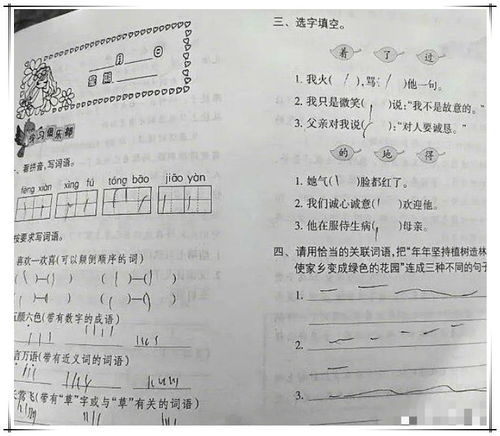 月 日
星期
学习俱乐部
一、看拼音,写词语。
fèng xiàn xìng fú tóng bāo jiāo yàn
按要求写词语。
喜欢—欢喜(可以颠倒顺序的词)
( )—( ) ( )—( )
( )—( ) ( )—( )
五颜六色(带有数字的成语)
言万语(带有近义词的词语)
莺飞(带有“草”字或与“草”有关的词语)
三、选字填空。
着 了 过
1. 我火( ),骂( )他一句。
2. 我只是微笑( )说:“我不是故意的。”
3. 父亲对我说( ):“对人要诚恳。”
的 地 得
1. 她气( )脸都红了。
2. 我们诚心诚意( )欢迎他。
3. 他在服侍生病( )母亲。
四、请用恰当的关联词语,把“年年坚持植树造林
使家乡变成绿色的花园”连成三种不同的句子
1.
2.
3.